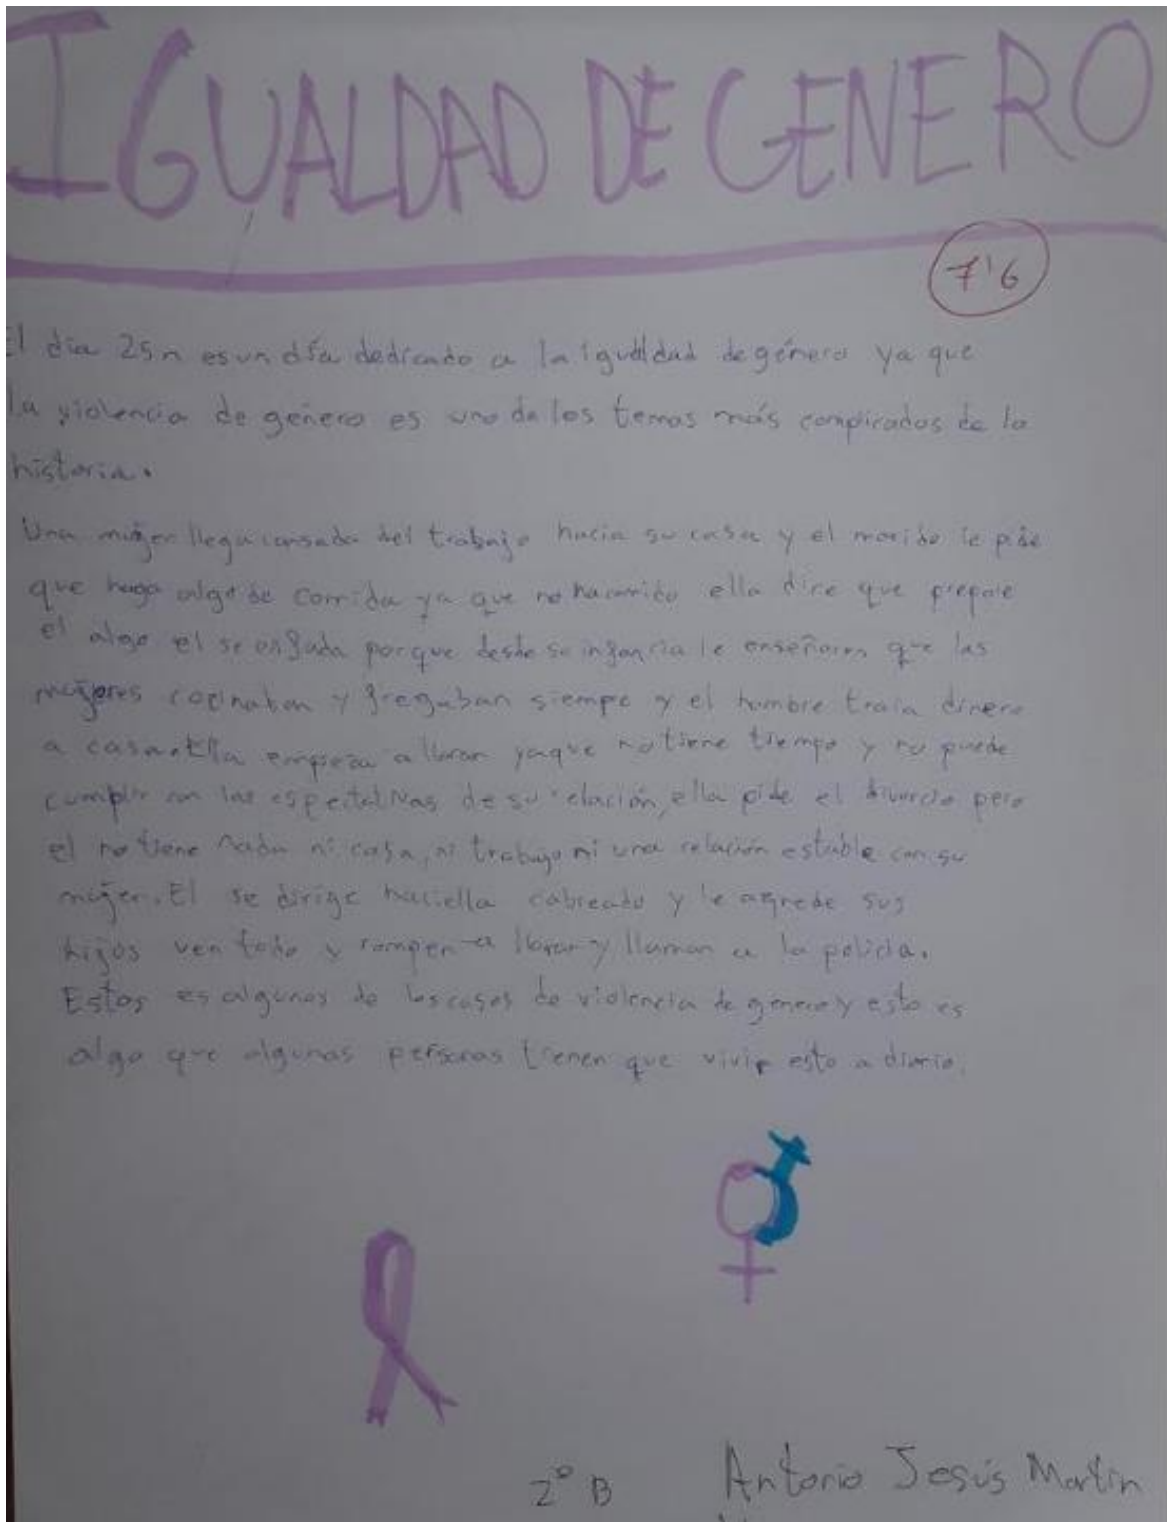 IGUALDAD DE GENERO
7'6
El día 25n es un día dedicado a la igualdad de género ya que
la violencia de género es uno de los temas más compircados de la
historia.
Una mujer llega cansada del trabajo hacia su casa y el marido le pide
que haga algo de comida ya que no ha comido ella dice que prepare
el algo el se enfada porque desde su infancia le enseñaron que las
mujeres cocinaban y fregaban siempre y el hombre traia dinero
a casa. Ella empieza a lloran ya que no tiene tiempo y no puede
cumplir con las espectativas de su relación, ella pide el divorcio pero
el no tiene nada ni casa, ni trabajo ni una relación estable con su
mujer. El se dirige haciella cabreado y le agrede sus
hijos ven todo y rompen a llorar y llaman a la policia.
Estos es algunos de los casos de violencia de genero y esto es
algo que algunas personas tienen que vivir esto a diario.
2º B
Antonio Jesús Martín